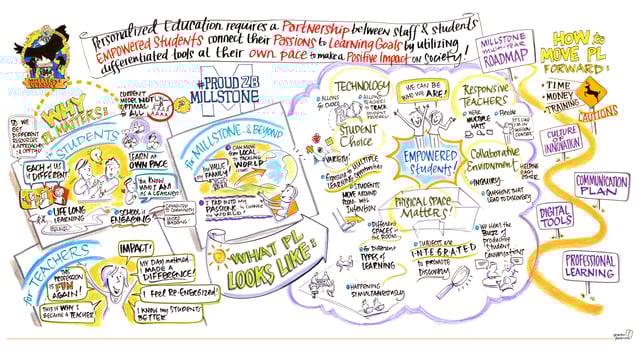 Personalized Education requires a Partnership between staff & students
EMPOWERED Students connect their Passions to Learning Goals by utilizing
differentiated tools at their own pace to make a Positive Impact on Society!
#PROUD2B
MILLSTONE
WHY
PL MATTERS:
for STUDENTS
CURRENT
MODEL NOT
OPTIMAL
to ALL
EACH of US
is DIFFERENT
LEARN at
OWN PACE
YOU KNOW
WHO I AM
AS A LEARNER!
LIFE LONG
LEARNING
SCHOOL is
ENGAGING
for MILLSTONE & BEYOND
WE VALUE
FAMILY
CAN MOVE
from LOCAL
to TACKLING
WORLD
I TAP INTO MY
PASSIONS to
WORLD!
for TEACHERS
IMPACT!
THIS
PROFESSION
IS FUN
AGAIN!
THIS IS WHY I
BECAME A TEACHER
MY DAY mattered
I MADE A
DIFFERENCE!
I feel RE-ENERGIZED!
I KNOW my STUDENTS
BETTER
WHAT PL
LOOKS LIKE:
TECHNOLOGY
STUDENT
Choice
VARIETY
MULTIPLE
Learning Opportunities
STUDENTS
MOVE AROUND
ROOM with
INTENTION
WE CAN BE
WHO WE ARE!
EMPOWERED
Students!
RESPONSIVE
TEACHERS
WEAR
MULTIPLE
HATS
Collaborative
Environment
HELPING
EACH
OTHER
INQUIRY:
QUESTIONS THAT
LEAD to DISCOVERY
PHYSICAL SPACE
Matters!
Different
SPACES in
the ROOM
for Different
TYPES of
LEARNING
HAPPENING
SIMULTANEOUSLY
SUBJECTS are
INTEGRATED
to PROMOTE
Discovery
WE WANT the
BUZZ of
PRODUCTIVE
STUDENT
CONVERSATIONS
MILLSTONE
MULTI-YEAR
ROADMAP
HOW to
MOVE PL
FORWARD:
TIME
MONEY
TRAINING
CAUTIONS
CULTURE of
INNOVATION
COMMUNICATION
PLAN
DIGITAL
TOOLS
PROFESSIONAL
LEARNING